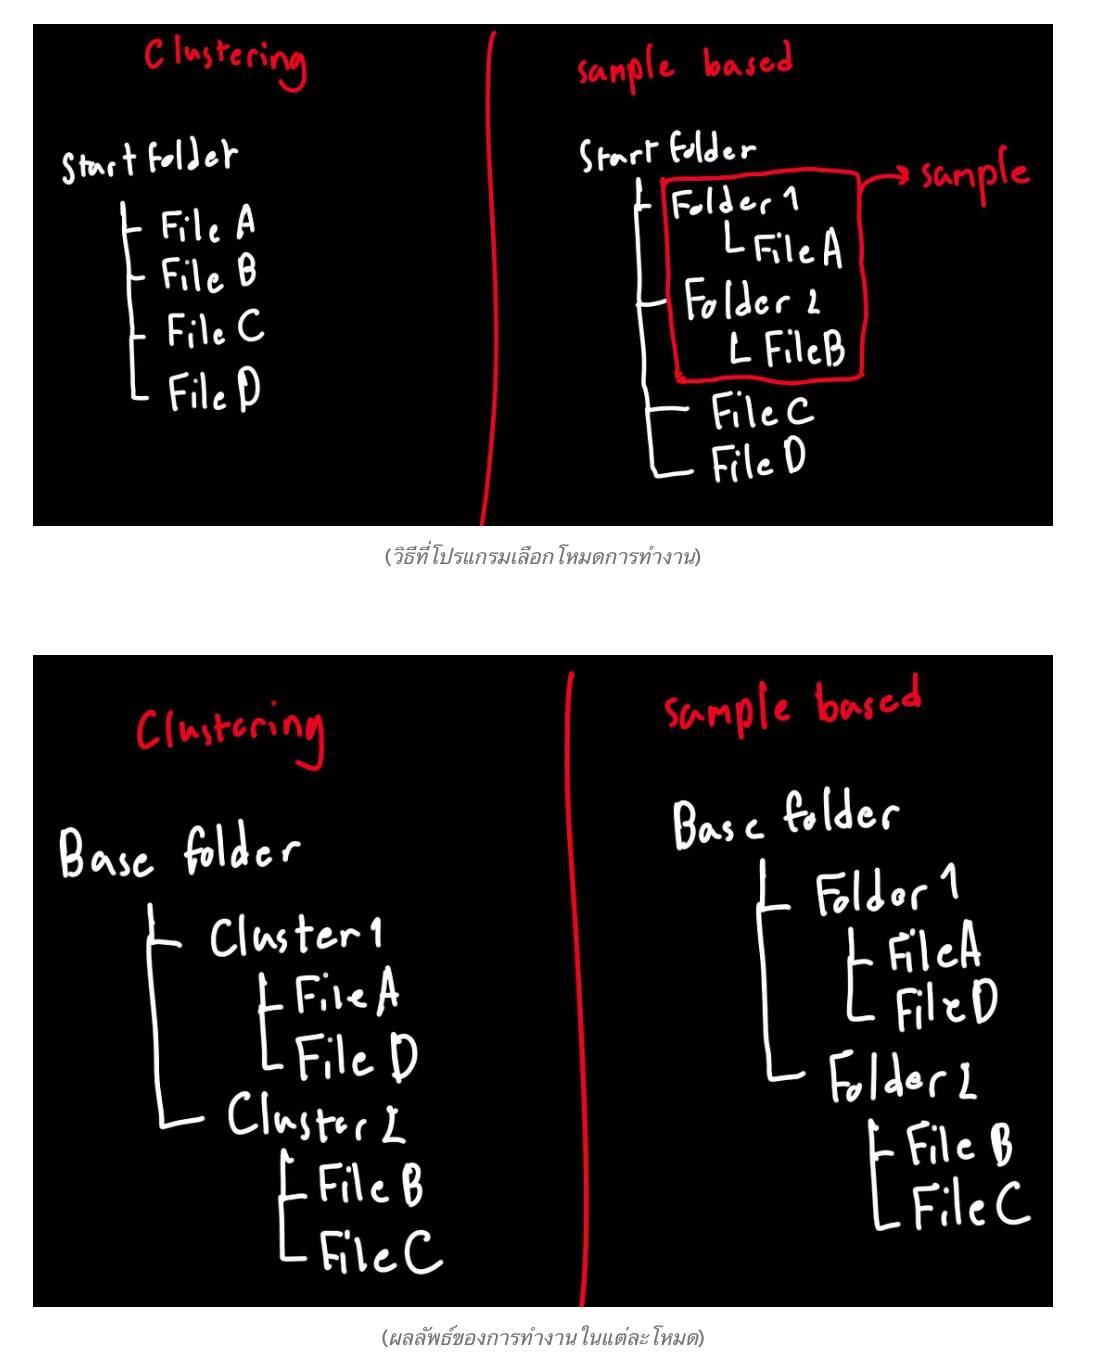 Clustering
Start folder
File A
File B
File C
File D
sample based
Start folder
Folder 1
File A
Folder 2
File B
File C
File D
sample
(วิธีที่โปรแกรมเลือกโหมดการทำงาน)
Clustering
Base folder
Cluster 1
File A
File D
Cluster 2
File B
File C
sample based
Base folder
Folder 1
File A
File D
Folder 2
File B
File C
(ผลลัพธ์ของการทำงานในแต่ละโหมด)